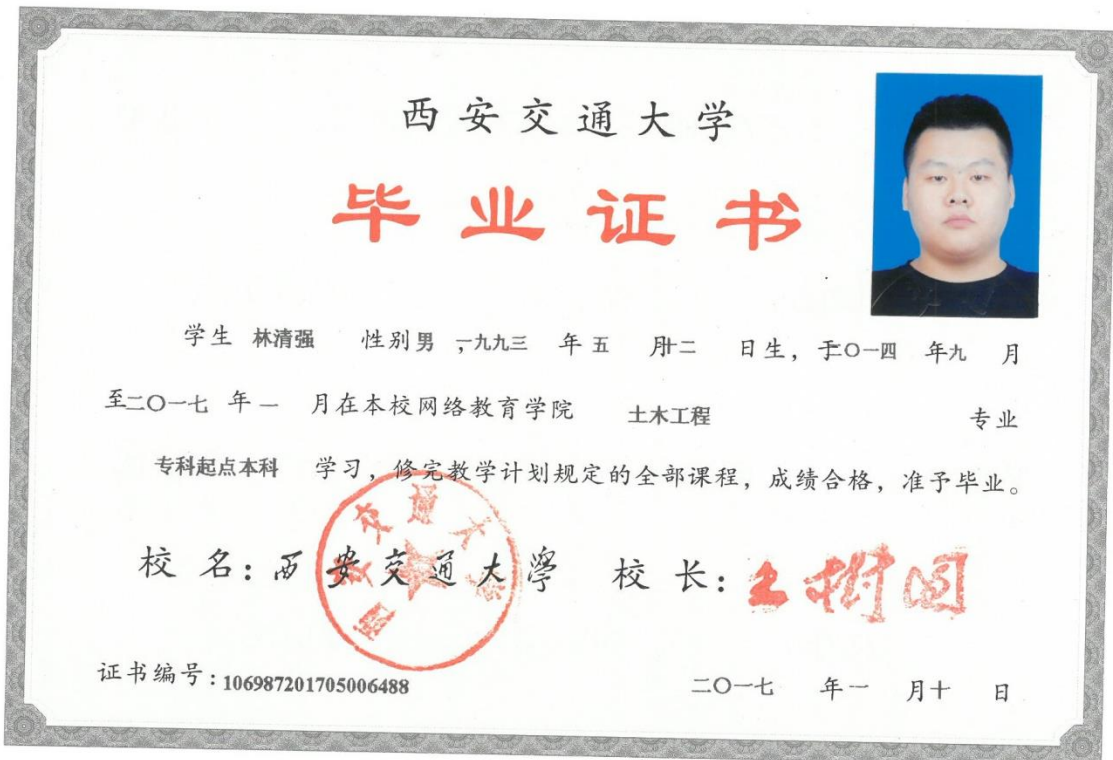 西安交通大学
毕业证书
学生 林清强 性别男 ,一九九三 年五 月十二 日生，于二〇一四 年九 月
至二〇一七 年一 月在本校网络教育学院 土木工程 专业
专科起点本科 学习，修完教学计划规定的全部课程，成绩合格，准予毕业。
校 名：西安交通大學 校 长：王树国
西安交通大学
证书编号：106987201705006488 二〇一七 年一 月十 日